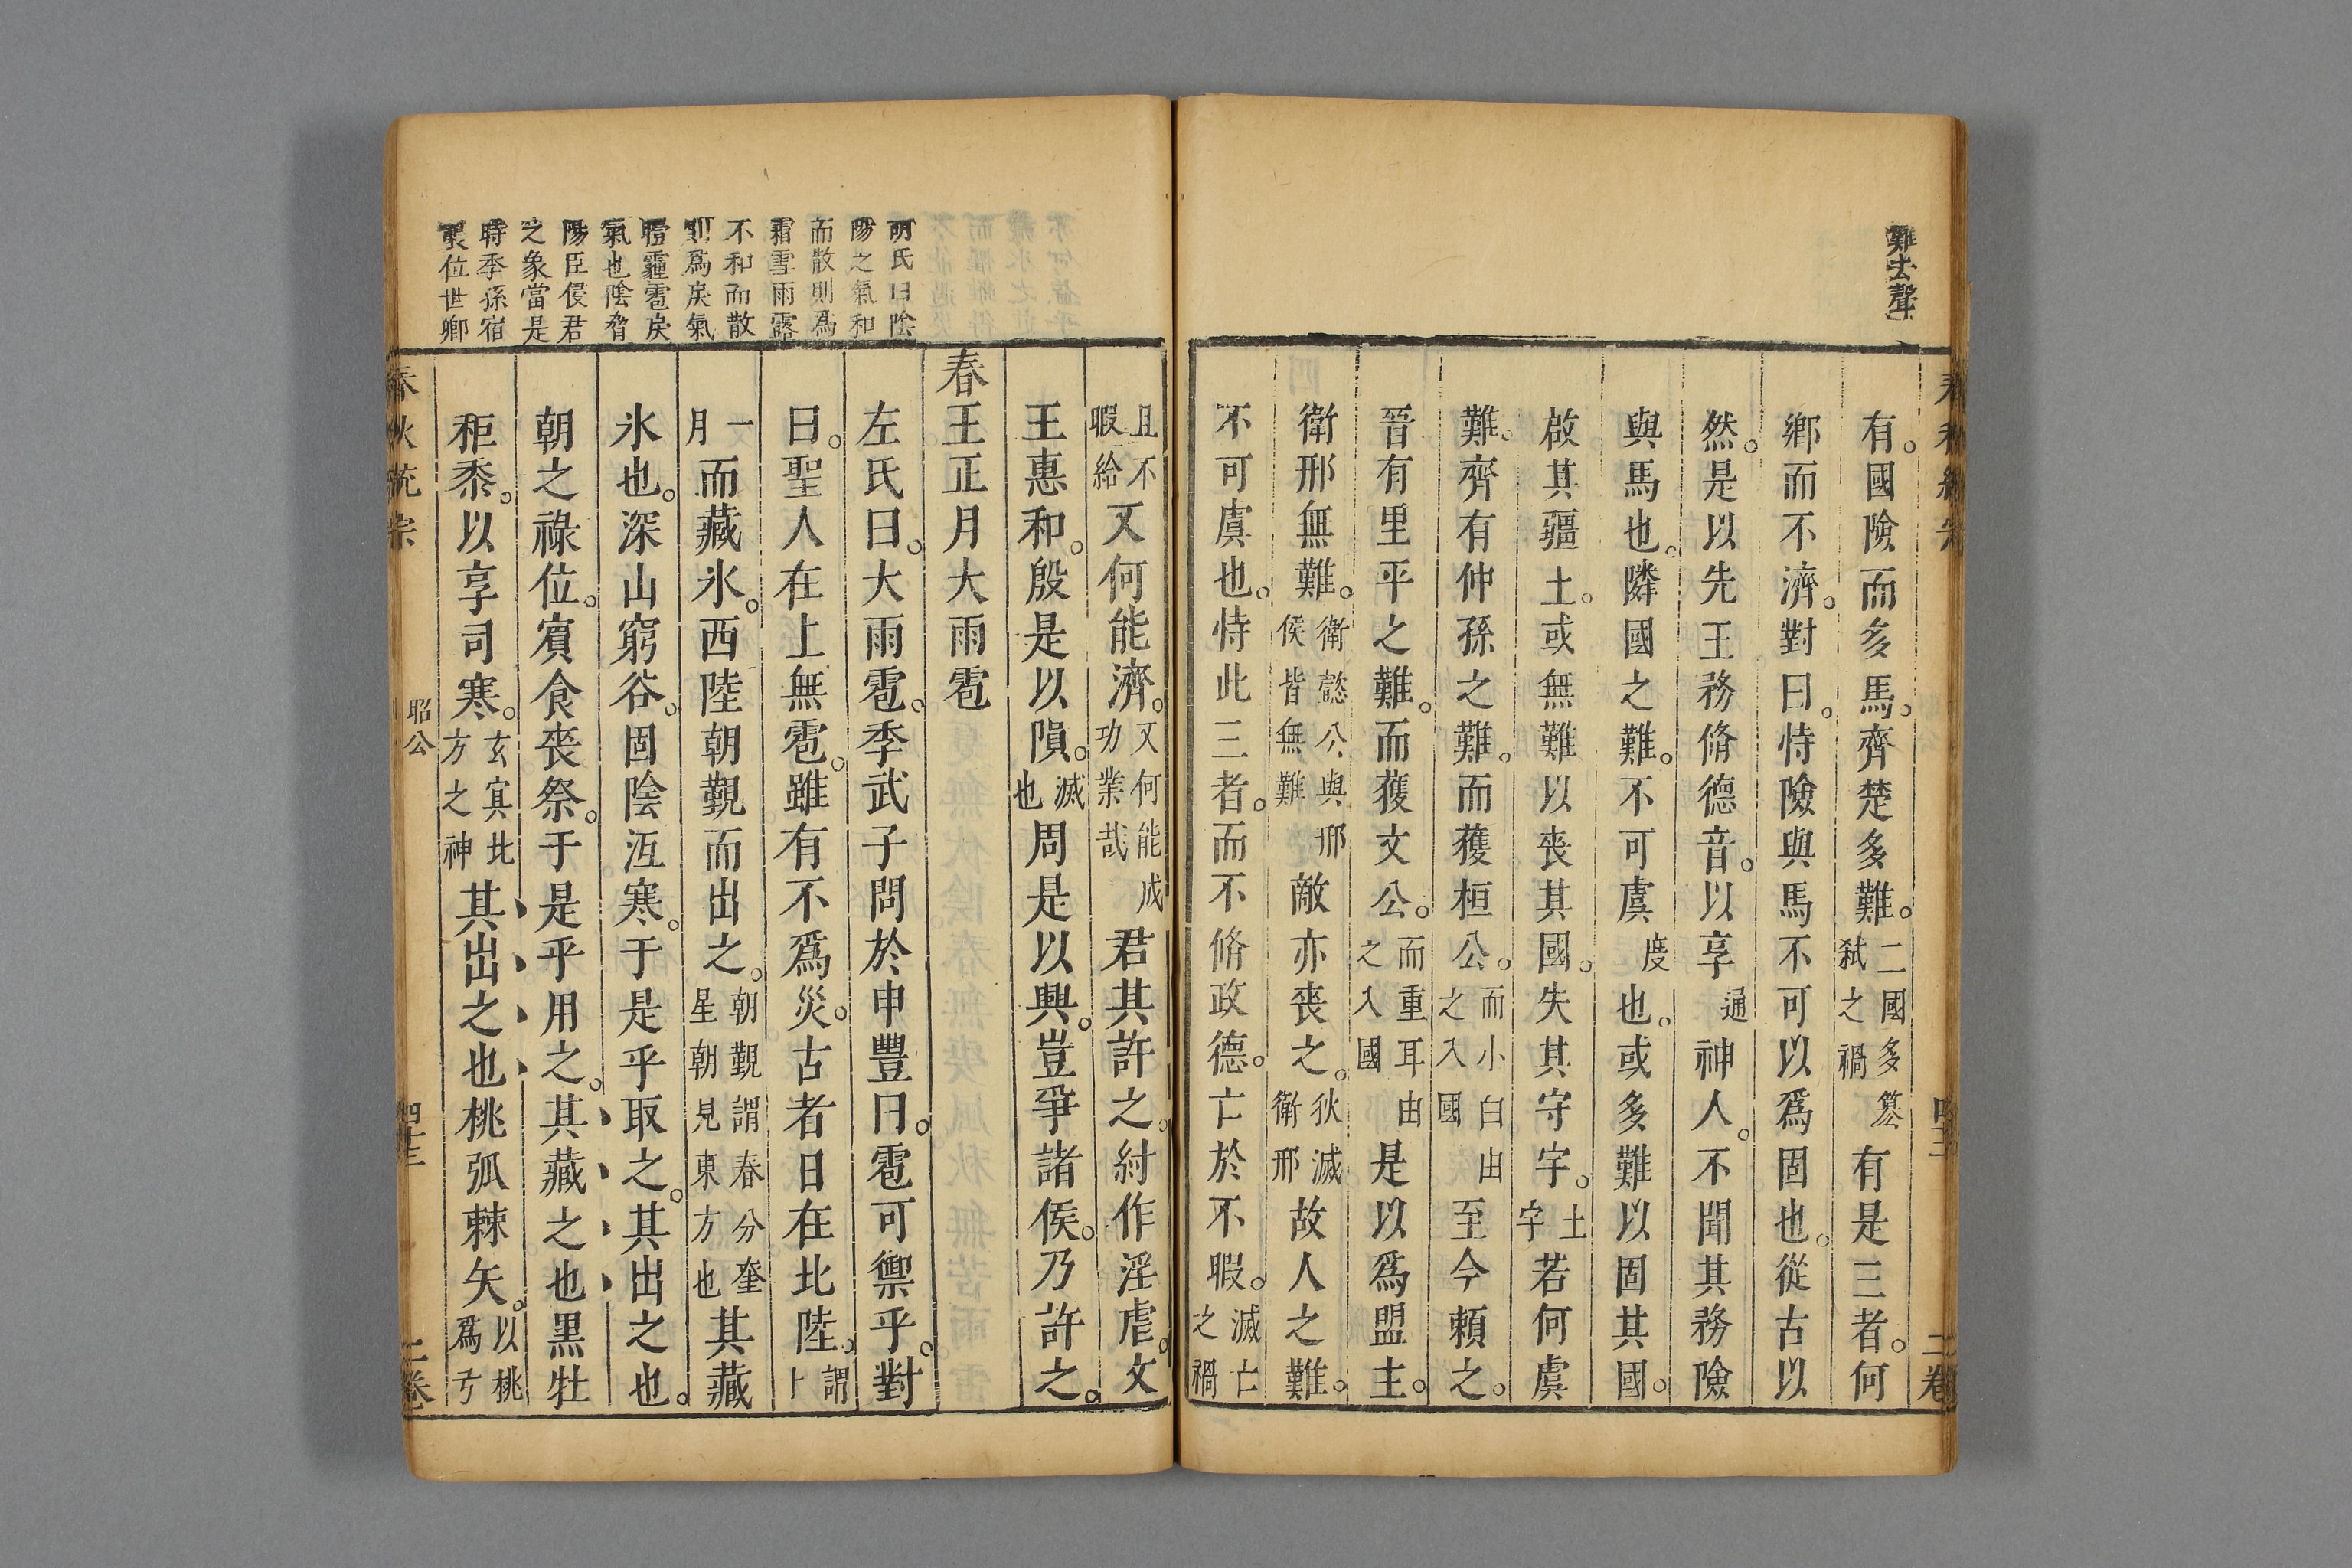 難去聲
有。國險而多馬。齊楚多難。二國多篡弑之禍有是三者。何
鄉而不濟。對曰。恃險與馬不可以爲固也。從古以
然。是以先王務脩德音。以享通神人。不聞其務險
與馬也。隣國之難。不可虞度也。或多難以固其國。
啟其疆土。或無難以喪其國。失其守宇。土宇若何虞
難。齊有仲孫之難。而獲桓公。而小白由之入國至今賴之。
晉有里平之難。而獲文公。而重耳由之入國是以爲盟主。
衛邢無難。衛懿公與邢侯皆無難敵亦喪之。狄滅衛邢故人之難。
不可虞也。恃此三者。而不脩政德。亡於不暇。滅亡之禍
且不暇給又何能濟。又何能成功業哉君其許之。紂作淫虐。文
王惠和。殷是以隕。滅也周是以興。豈爭諸侯。乃許之。
春王正月大雨雹
左氏曰。大雨雹。季武子問於申豐曰。雹可禦乎。對
曰。聖人在上無雹。雖有不爲災。古者日在北陸。謂
一月而藏氷。西陸朝覿而出之。朝覿謂春分奎星朝見東方也其藏
氷也。深山窮谷。固陰沍寒。于是乎取之。其出之也。
朝之祿位。賓食喪祭。于是乎用之。其藏之也黑牡
秬黍。以享司寒。玄冥北方之神其出之也桃弧棘矢。以桃爲
氏曰陰
陽之氣和
而散則爲
霜雪雨露
不和而散
則爲戾氣
曀霾雹戾
氣也陰脅
陽臣侵君
之象當是
時季孫宿
襲位世卿
春秋統宗
昭公
四十三
二卷